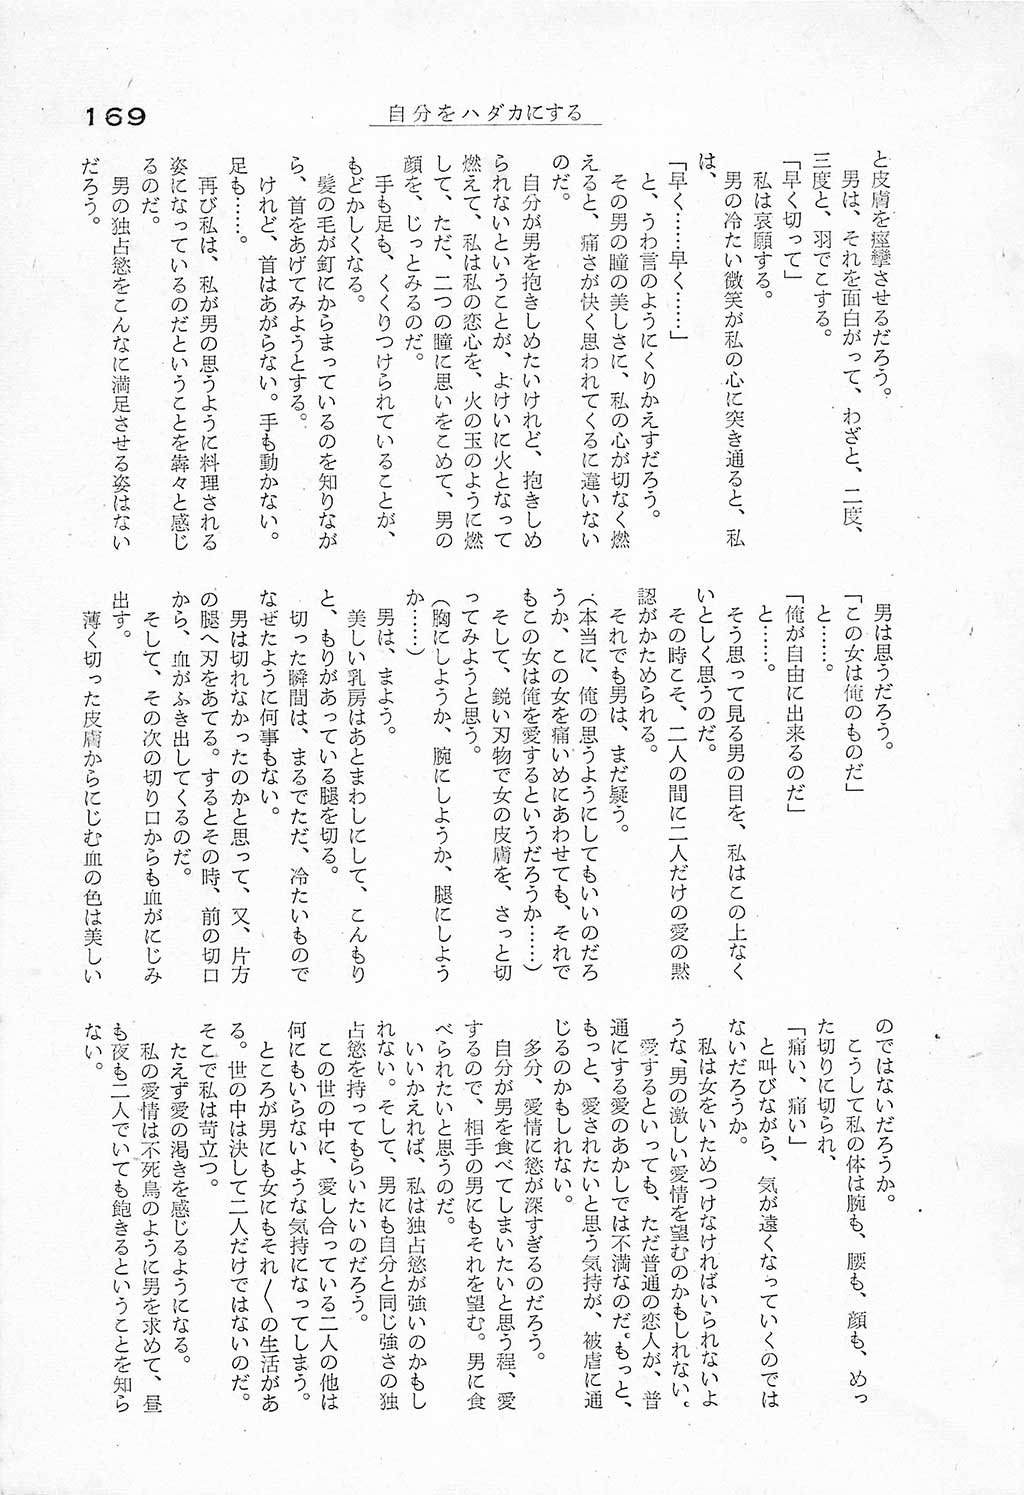 169
自分をハダカにする
と皮膚を痙攣させるだろう。
男は、それを面白がって、わざと、二度、
三度と、羽でこする。
「早く切って」
私は哀願する。
男の冷たい微笑が私の心に突き通ると、私
は、
「早く……早く……」
と、うわ言のようにくりかえすだろう。
その男の瞳の美しさに、私の心が切なく燃
えると、痛さが快く思われてくるに違いない
のだ。
自分が男を抱きしめたいけれど、抱きしめ
られないということが、よけいに火となって
燃えて、私は私の恋心を、火の玉のように燃
して、ただ、二つの瞳に思いをこめて、男の
顔を、じっとみるのだ。
手も足も、くくりつけられていることが、
もどかしくなる。
髪の毛が釘にからまっているのを知りなが
ら、首をあげてみようとする。
けれど、首はあがらない。手も動かない。
足も……。
再び私は、私が男の思うように料理される
姿になっているのだということを犇々と感じ
るのだ。
男の独占慾をこんなに満足させる姿はない
だろう。
男は思うだろう。
「この女は俺のものだ」
と……。
「俺が自由に出来るのだ」
と……。
そう思って見る男の目を、私はこの上なく
いとしく思うのだ。
その時こそ、二人の間に二人だけの愛の黙
認がかためられる。
それでも男は、まだ疑う。
（本当に、俺の思うようにしてもいいのだろ
うか、この女を痛いめにあわせても、それで
もこの女は俺を愛するというだろうか……）
そして、鋭い刃物で女の皮膚を、さっと切
ってみようと思う。
（胸にしようか、腕にしようか、腿にしよう
か……）
男は、まよう。
美しい乳房はあとまわしにして、こんもり
と、もりがあっている腿を切る。
切った瞬間は、まるでただ、冷たいもので
なぜたように何事もない。
男は切れなかったのかと思って、又、片方
の腿へ刃をあてる。するとその時、前の切口
から、血がふき出してくるのだ。
そして、その次の切り口からも血がにじみ
出す。
薄く切った皮膚からにじむ血の色は美しい
のではないだろうか。
こうして私の体は腕も、腰も、顔も、めっ
た切りに切られ、
「痛い、痛い」
と叫びながら、気が遠くなっていくのでは
ないだろうか。
私は女をいためつけなければいられないよ
うな、男の激しい愛情を望むのかもしれない。
愛するといっても、ただ普通の恋人が、普
通にする愛のあかしでは不満なのだ。もっと、
もっと、愛されたいと思う気持が、被虐に通
じるのかもしれない。
多分、愛情に慾が深すぎるのだろう。
自分が男を食べてしまいたいと思う程、愛
するので、相手の男にもそれを望む。男に食
べられたいと思うのだ。
いいかえれば、私は独占慾が強いのかもし
れない。そして、男にも自分と同じ強さの独
占慾を持ってもらいたいのだろう。
この世の中に、愛し合っている二人の他は
何にもいらないような気持になってしまう。
ところが男にも女にもそれ〱の生活があ
る。世の中は決して二人だけではないのだ。
そこで私は苛立つ。
たえず愛の渇きを感じるようになる。
私の愛情は不死鳥のように男を求めて、昼
も夜も二人でいても飽きるということを知ら
ない。